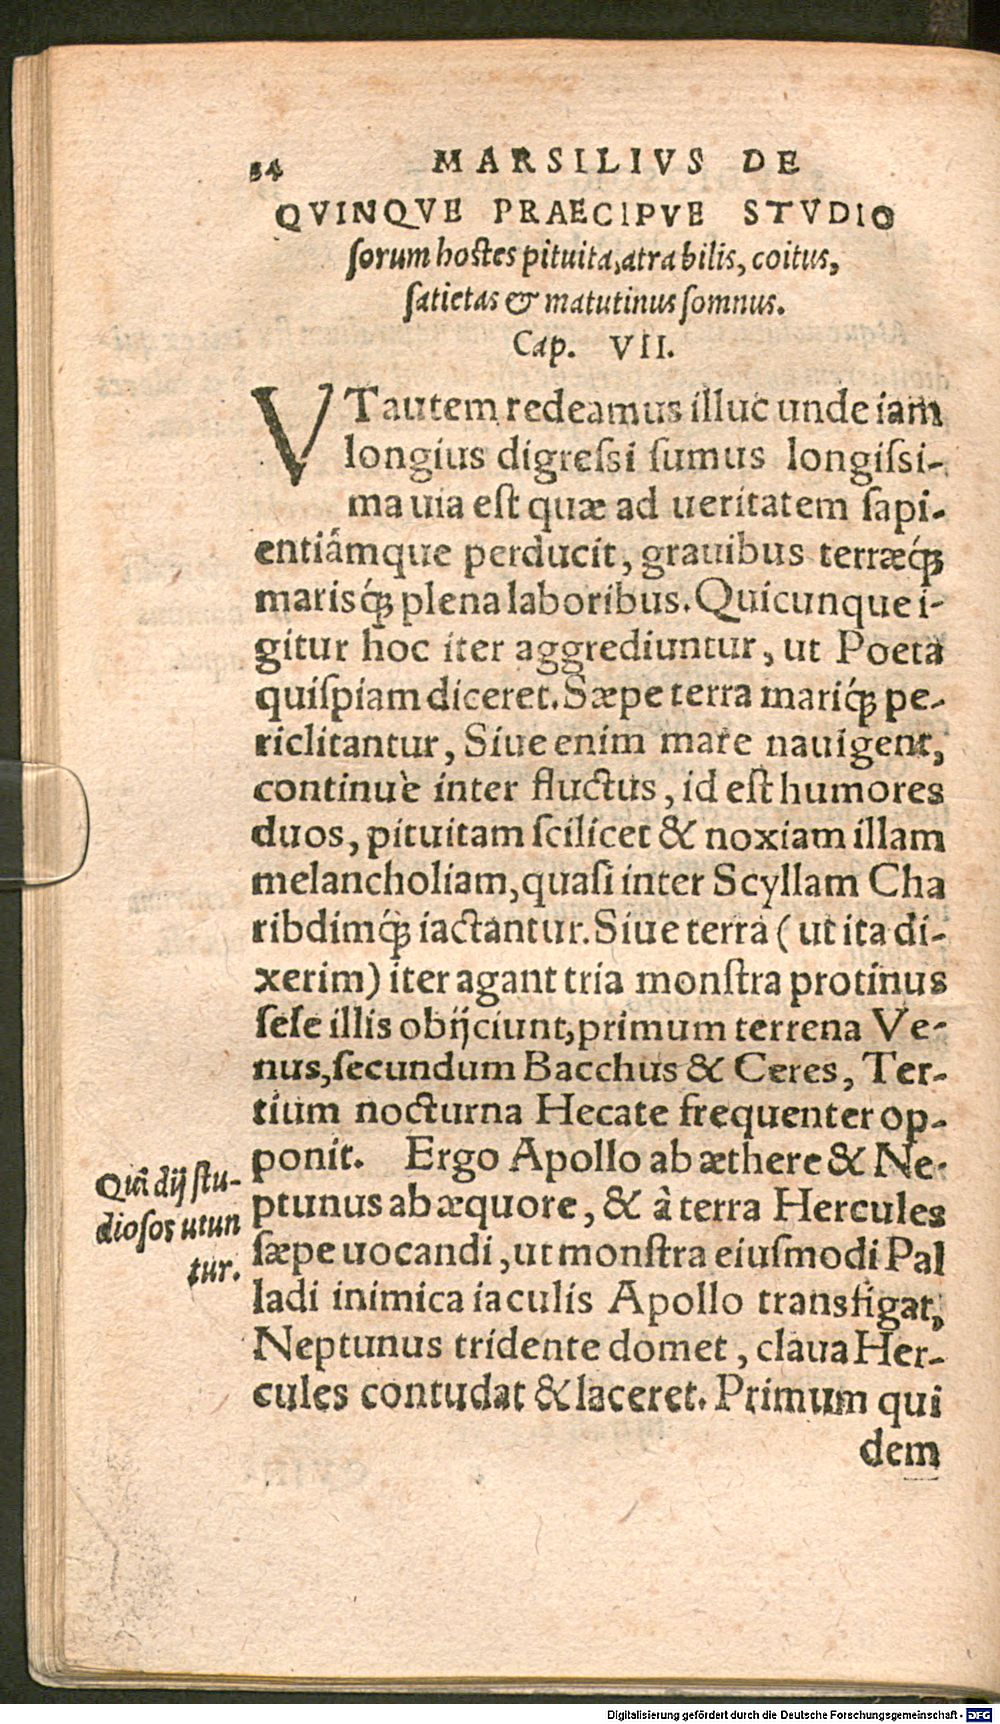 34 MARSILIVS DE
QVINQVE PRAECIPVE STVDIO
ſorum hoſtes pituita, atra bilis, coitus,
ſatietas & matutinus ſomnus.
Cap. VII.
VT autem redeamus illuc unde iam
longius digreſsi ſumus longiſsi-
ma uia eſt quæ ad ueritatem ſapi-
entiámque perducit, grauibus terræq́ꝫ
marisq́ꝫ plena laboribus. Quicunque i-
gitur hoc iter aggrediuntur, ut Poeta
quiſpiam diceret. Sæpe terra mariq́ꝫ pe-
riclitantur, Siue enim mare nauigent,
continuè inter fluctus, id eſt humores
duos, pituitam ſcilicet & noxiam illam
melancholiam, quaſi inter Scyllam Cha
ribdimq́ꝫ iactantur. Siue terra (ut ita di-
xerim) iter agant tria monſtra protinus
ſeſe illis obijciunt, primum terrena Ve-
nus, ſecundum Bacchus & Ceres, Ter-
tium nocturna Hecate frequenter op-
ponit. Ergo Apollo ab æthere & Ne-
ptunus ab æquore, & à terra Hercules
ſæpe uocandi, ut monſtra eiuſmodi Pal
ladi inimica iaculis Apollo transfigat,
Neptunus tridente domet, claua Her-
cules contudat & laceret. Primum qui
dem
Quî dij ſtu-
dioſos utun
tur.
Digitalisierung gefördert durch die Deutsche Forschungsgemeinschaft - DFG